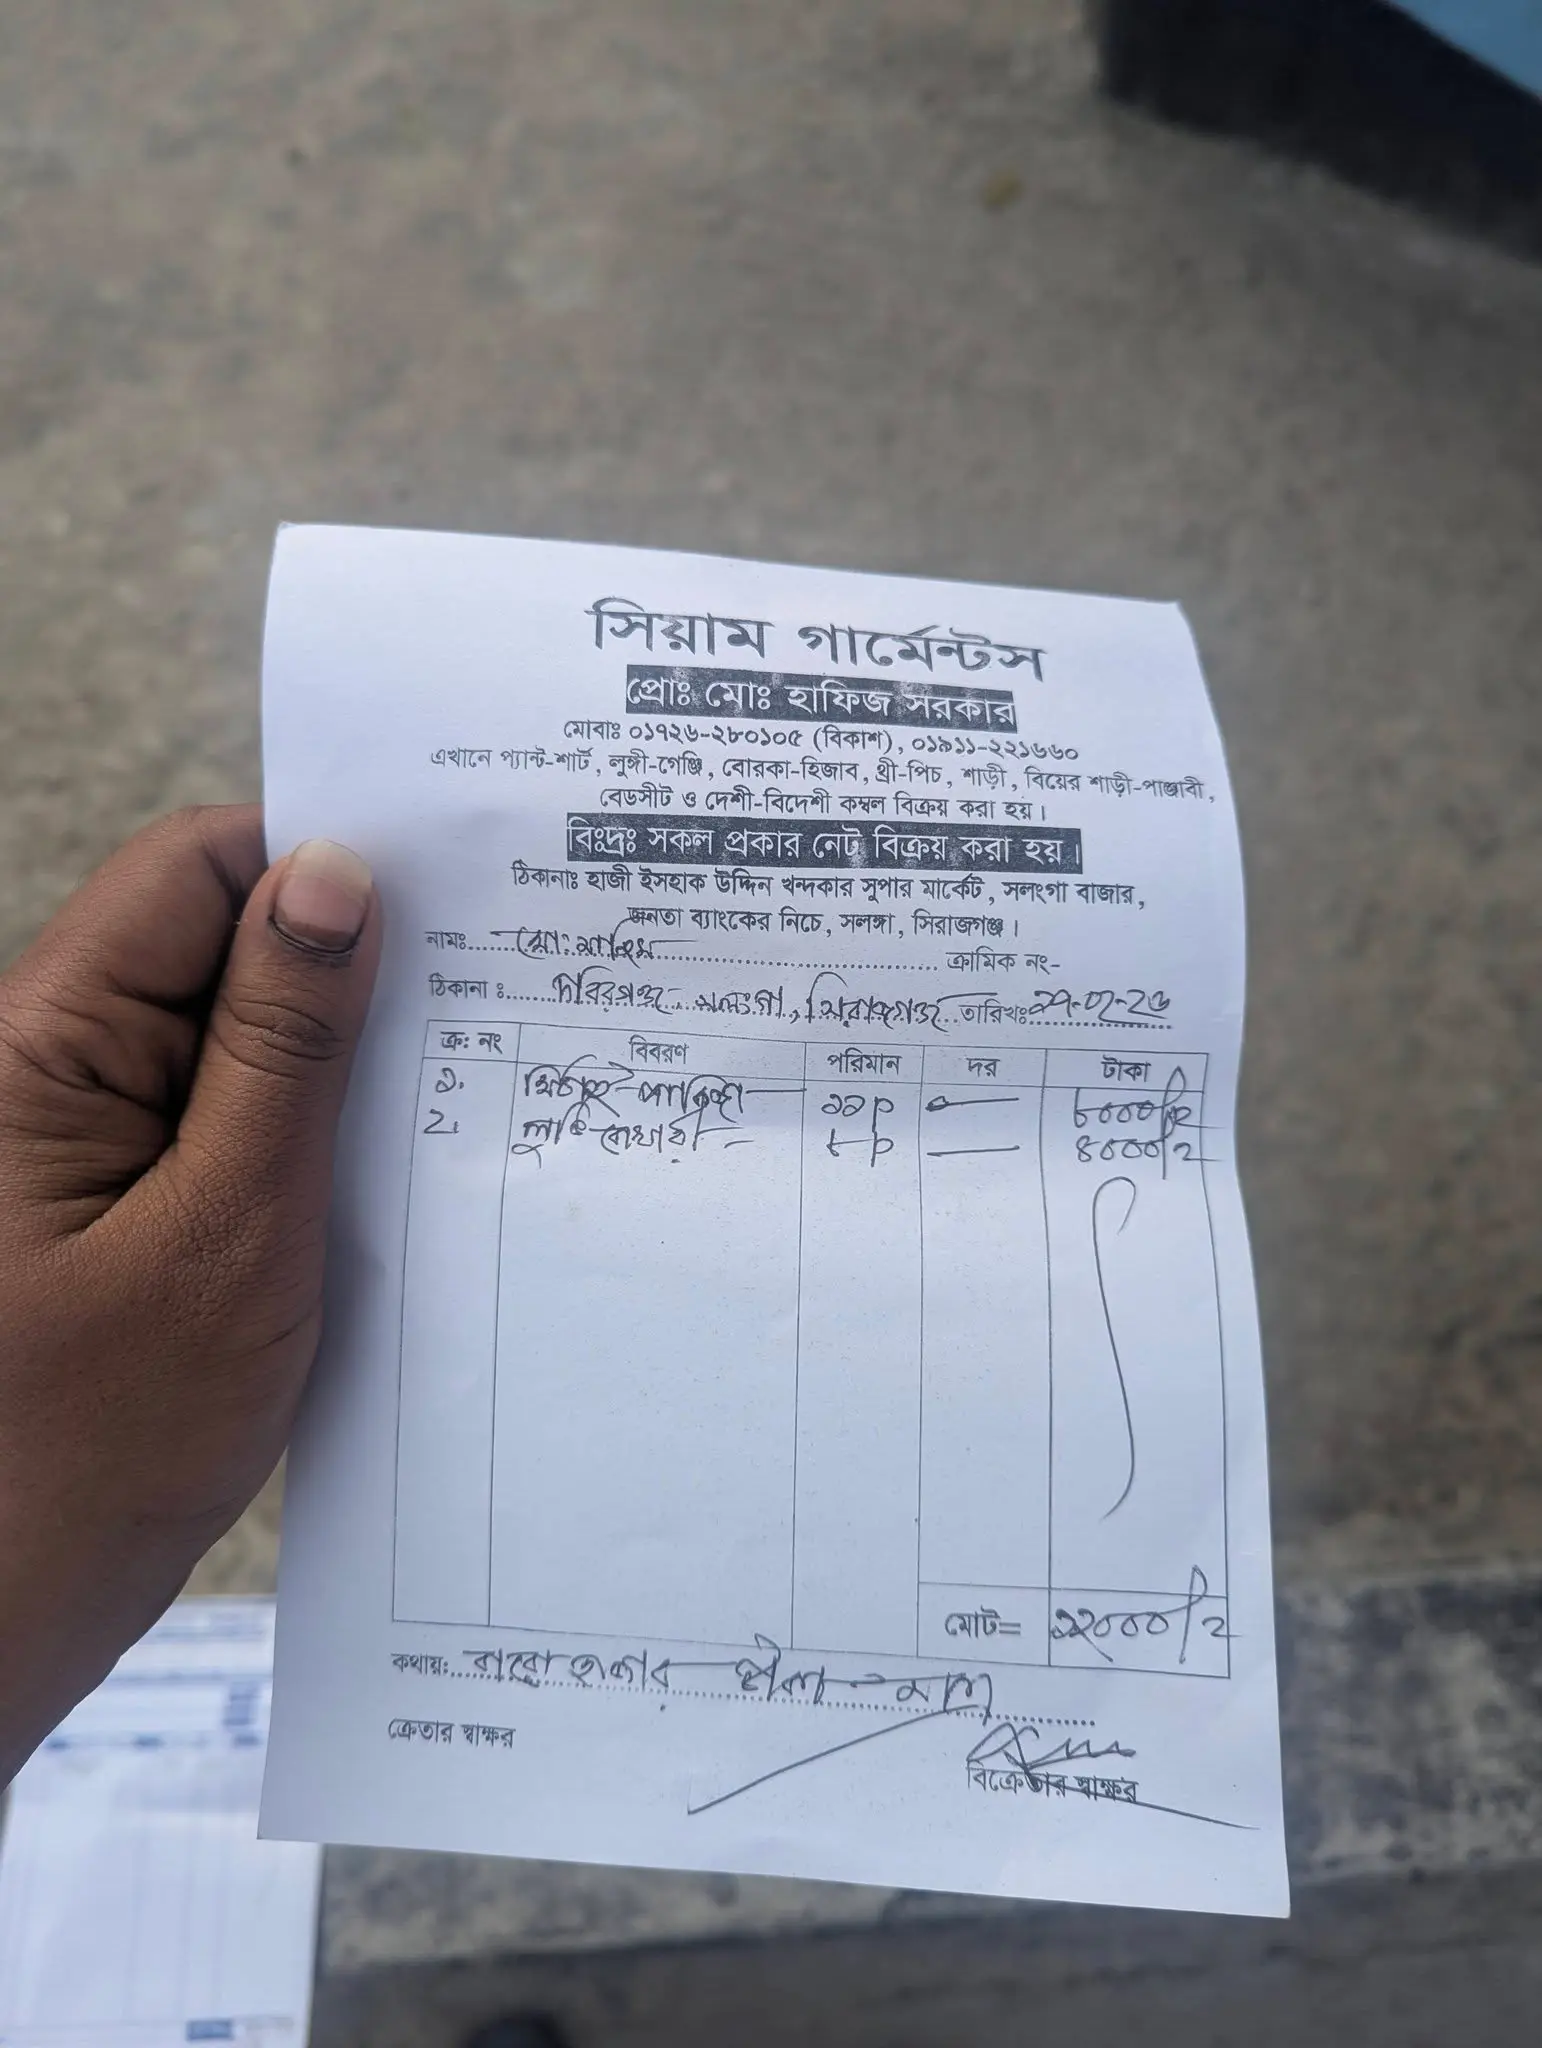 সিয়াম গার্মেন্টস
প্রোঃ মোঃ হাফিজ সরকার
মোবাঃ ০১৭২৬-২৮০১০৫ (বিকাশ), ০১৯১১-২২১৬৬০
এখানে প্যান্ট-শার্ট, লুঙ্গী-গেঞ্জি, বোরকা-হিজাব, থ্রী-পিচ, শাড়ী, বিয়ের শাড়ী-পাঞ্জাবী,
বেডসীট ও দেশী-বিদেশী কম্বল বিক্রয় করা হয়।
বিঃদ্রঃ সকল প্রকার নেট বিক্রয় করা হয়।
ঠিকানাঃ হাজী ইসহাক উদ্দিন খন্দকার সুপার মার্কেট, সলংগা বাজার,
জনতা ব্যাংকের নিচে, সলঙ্গা, সিরাজগঞ্জ।
নামঃ মো: ক্রামিক নং-
ঠিকানা ঃ সলংগা, সিরাজগঞ্জ তারিখঃ
ক্র: নং বিবরণ পরিমান দর টাকা
১. ১১ p ৮০০০/=
২. লুঙ্গি ৮ p ৪০০০/=
মোট= ১২০০০/=
কথায়ঃ বারো হাজার টাকা মাত্র
ক্রেতার স্বাক্ষর বিক্রেতার স্বাক্ষর